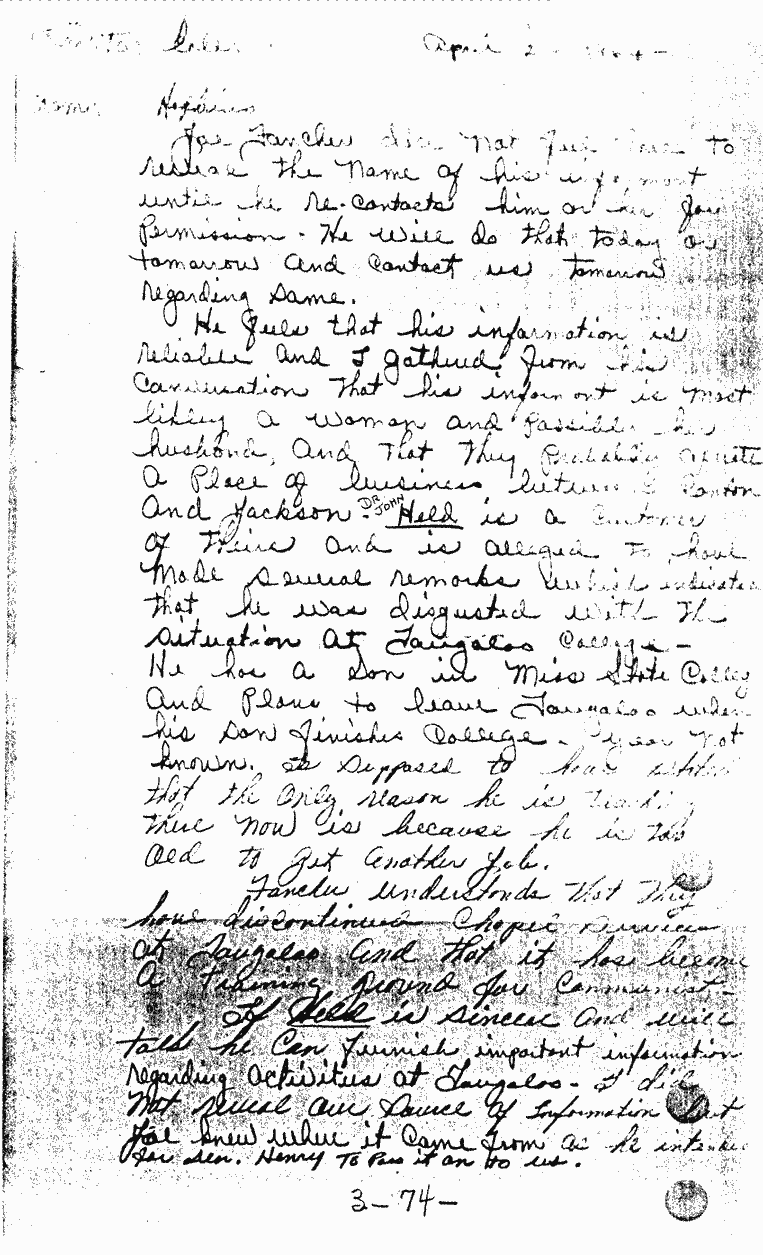 April 2
Hopkins
Joe Fancher does not feel free to
reveal the name of his informont
until he re-contacts him or her for
permission - He will do that today or
tomorrow and contact us tomorrow
regarding same.
He feels that his information is
reliable and I gathered from his
conversation that his informont is most
likely a woman and possibly her
husband, and that they probably operate
a place of business between Canton
and Jackson. DR JOHN Held is a customer
of theirs and is alleged to have
made several remarks which indicated
that he was disgusted with the
situation at Tougaloo College -
He has a son in Miss State College
and plans to leave Tougaloo when
his son finishes College - year not
known. Is supposed to have stated
that the only reason he is teaching
there now is because he is too
old to get another job.
Fancher understands that they
have discontinued Chapel services
at Tougaloo and that it has become
a training ground for Communist -
If Held is sincere and will
talk he can furnish important information
regarding activities at Tougaloo - I did
not reveal our source of information but
Joe knew where it came from as he intended
for Sen. Henry to pass it on to us.
3-74-